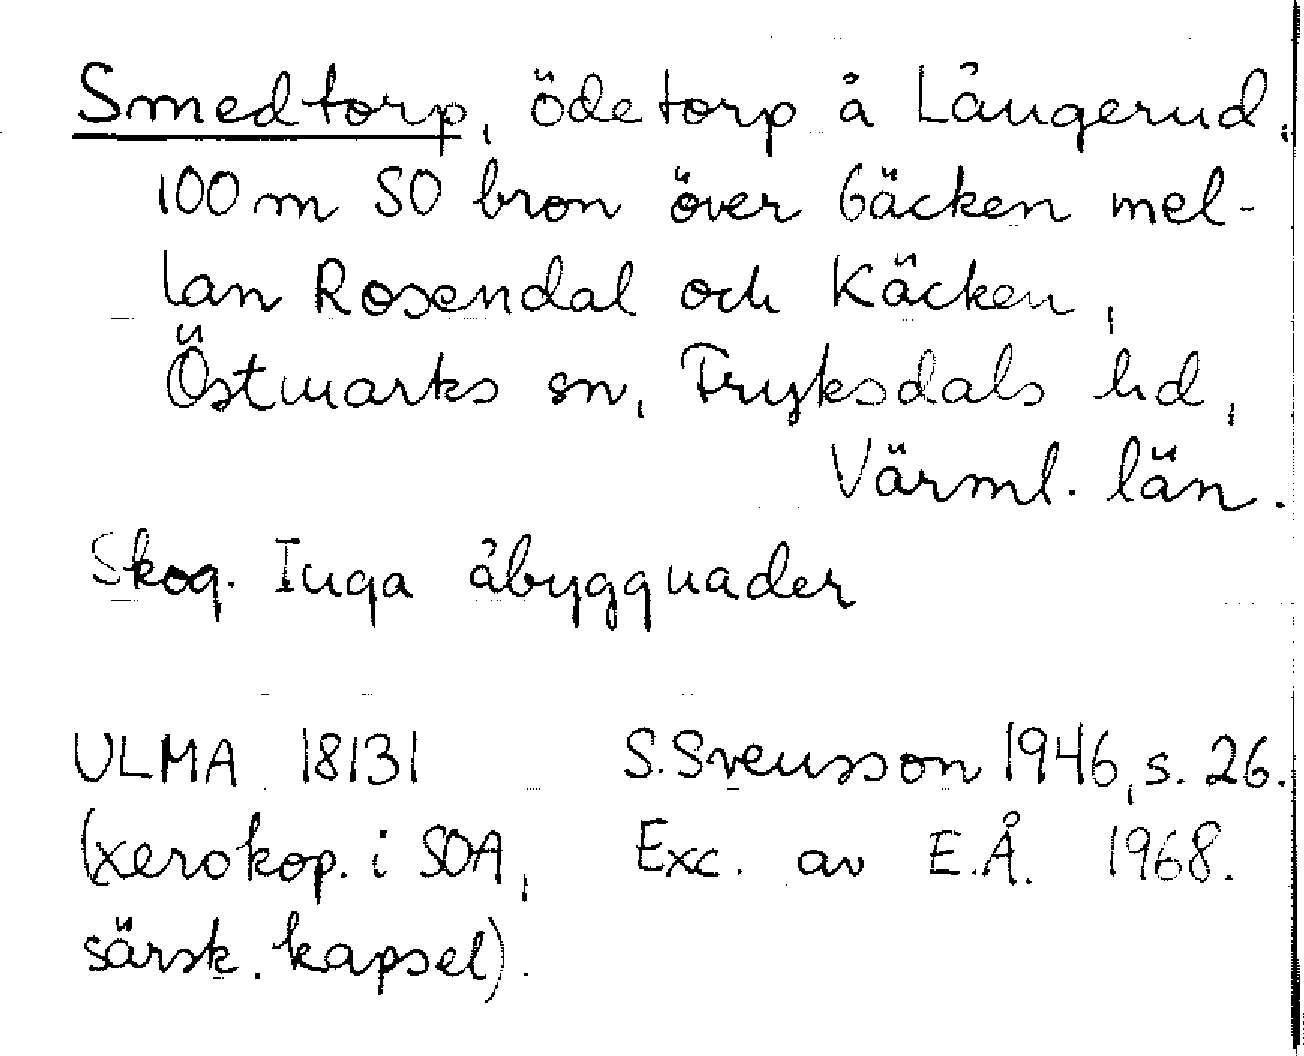 Smedtorp, ödetorp å Långerud,
100 m SO bron över bäcken mel-
lan Rosendal och Käcken,
Östmarks sn, Fryksdals hd,
Värml. län.
Skog. Inga åbyggnader
ULMA 18131 S. Svensson 1946, s. 26.
(xerokop. i SOA, Exc. av E.Å. 1968.
särsk. kapsel).